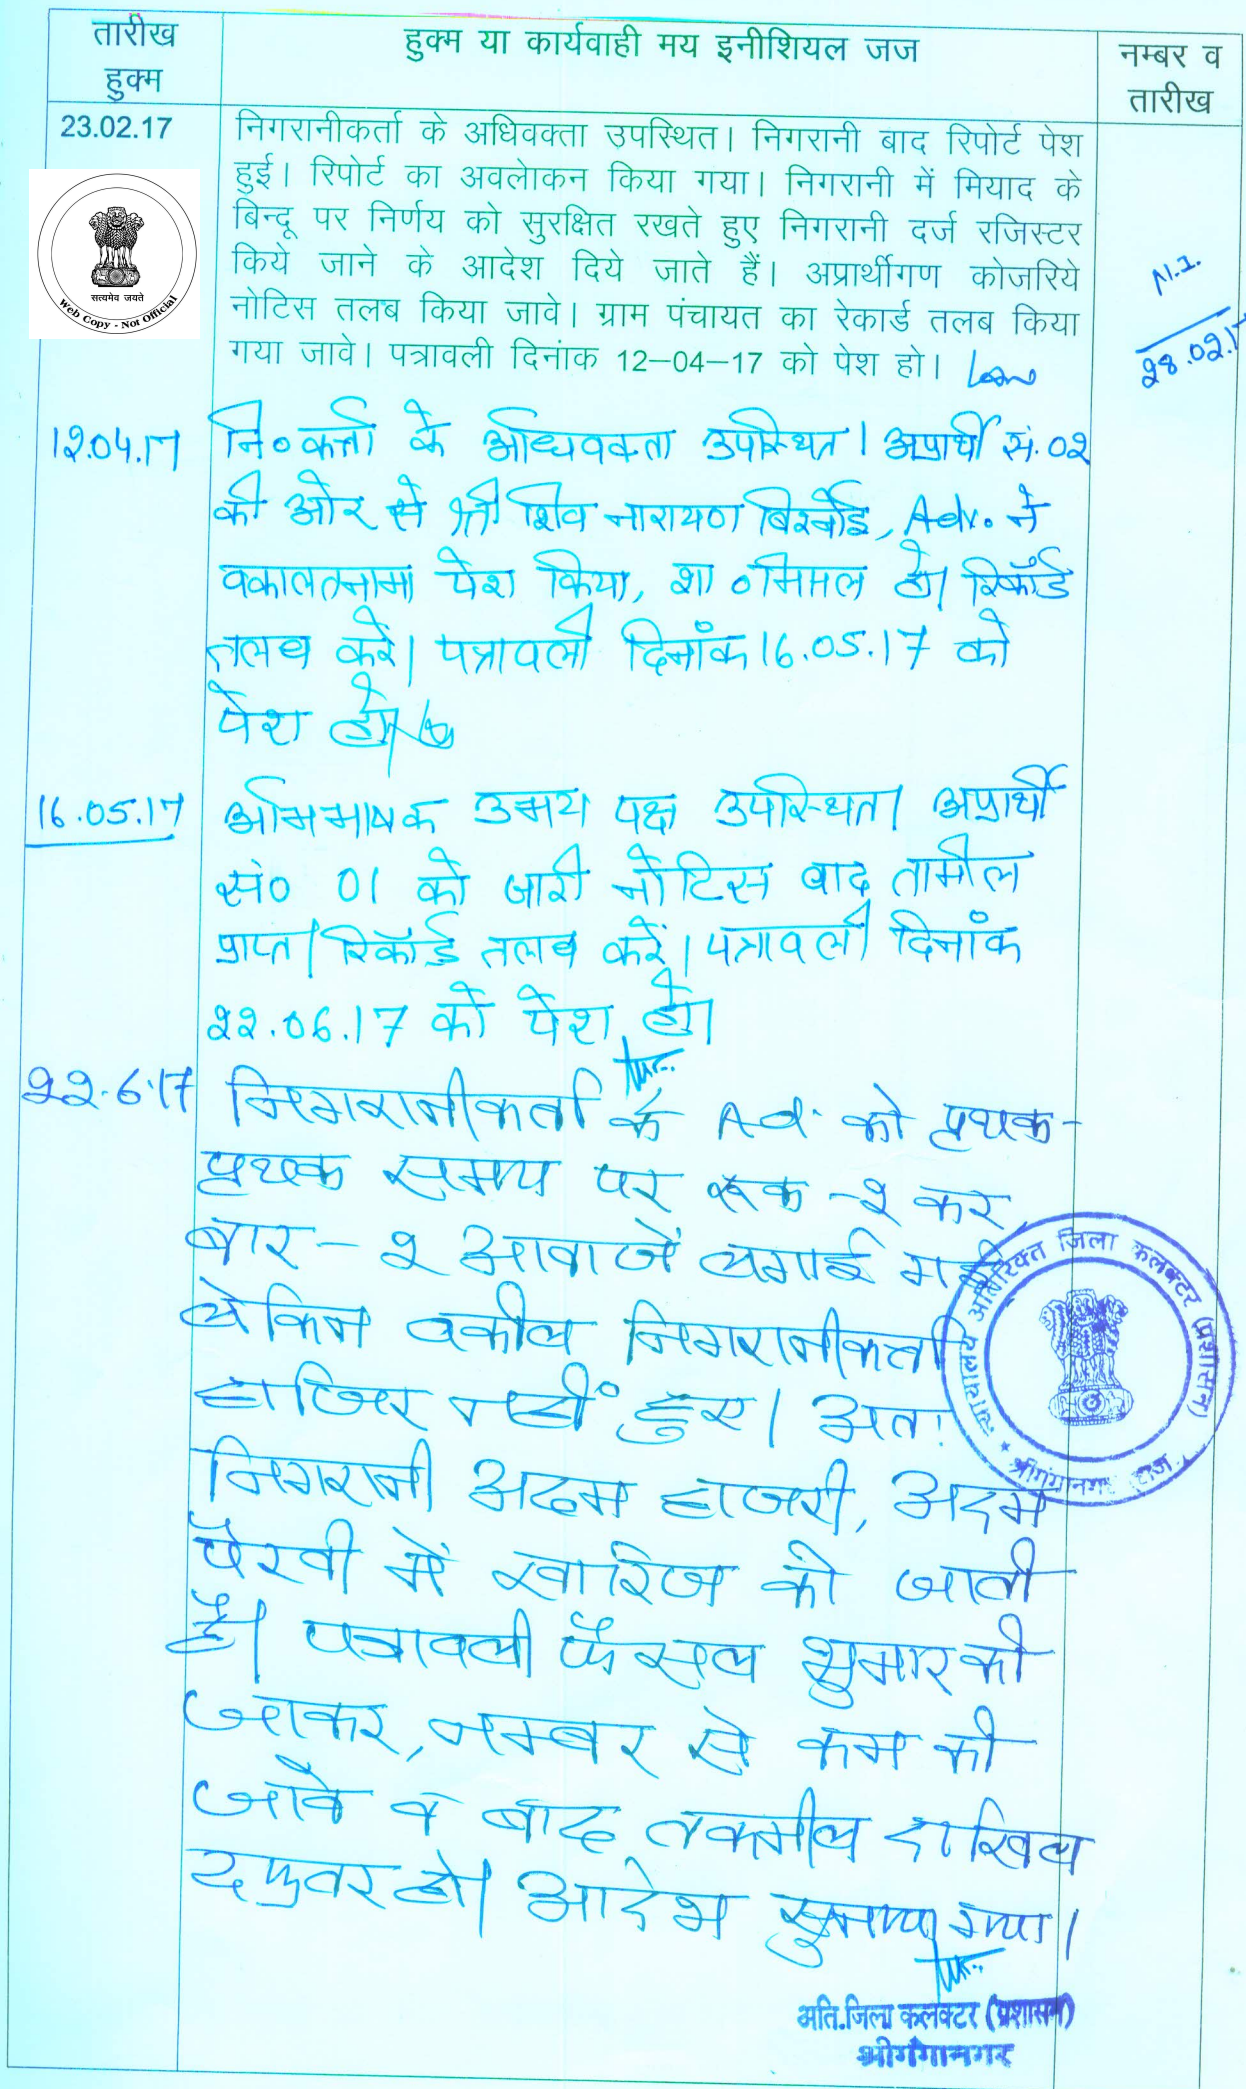 तारीख
हुक्म
हुक्म या कार्यवाही मय इनीशियल जज
नम्बर व
तारीख
23.02.17
निगरानीकर्ता के अधिवक्ता उपस्थित। निगरानी बाद रिपोर्ट पेश
हुई। रिपोर्ट का अवलोकन किया गया। निगरानी में मियाद के
बिन्दू पर निर्णय को सुरक्षित रखते हुए निगरानी दर्ज रजिस्टर
किये जाने के आदेश दिये जाते हैं। अप्रार्थीगण कोजरिये
नोटिस तलब किया जावे। ग्राम पंचायत का रेकार्ड तलब किया
गया जावे। पत्रावली दिनांक 12–04–17 को पेश हो।
सत्यमेव जयते
Web Copy - Not Official
N.I.
28.02.17
12.04.17
नि० कर्ता के अधिवक्ता उपस्थित। अप्रार्थी सं. 02
की ओर से श्री शिव नारायण बिश्नोई, Adv. ने
वकालतनामा पेश किया, शा०मिसल हो। रिकॉर्ड
तलब करें। पत्रावली दिनांक 16.05.17 को
पेश हो।
16.05.17
अभिभाषक उभय पक्ष उपस्थित। अप्रार्थी
सं० 01 को जारी नोटिस बाद तामील
प्राप्त। रिकॉर्ड तलब करें। पत्रावली दिनांक
22.06.17 को पेश हो।
22.6.17
निगरानीकर्ता के Ad. को पृथक-
पृथक समय पर रूक-२ कर
बार-२ आवाजें लगाई गई
लेकिन वकील निगरानीकर्ता
हाजिर नहीं हुए। अतः
निगरानी अदम हाजरी, अदम
पैरवी में खारिज की जाती
है। पत्रावली फैसल शुमार की
जाकर, नम्बर से कम की
जावे व बाद तकमील दाखिल
दफ्तर हो। आदेश सुनाया गया।
न्यायालय अतिरिक्त जिला कलक्टर (प्रशासन)
श्रीगंगानगर राज.
अति.जिला कलक्टर (प्रशासन)
श्रीगंगानगर